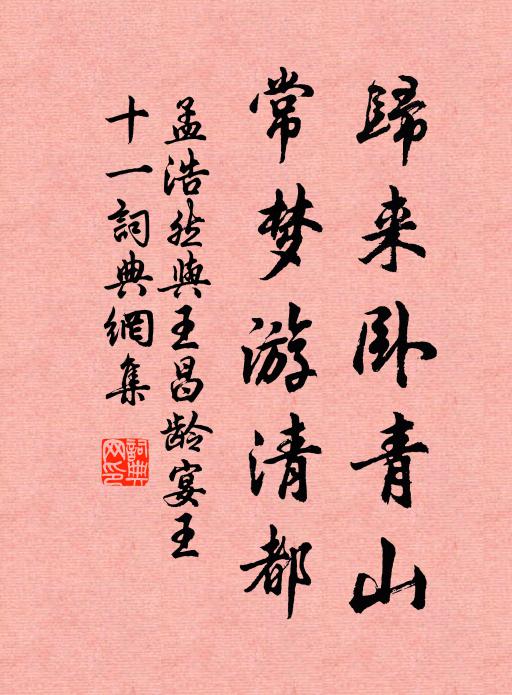 歸来卧青山
常梦游清都
孟浩然與王昌龄宴王
十一詞典網集
詞典網印